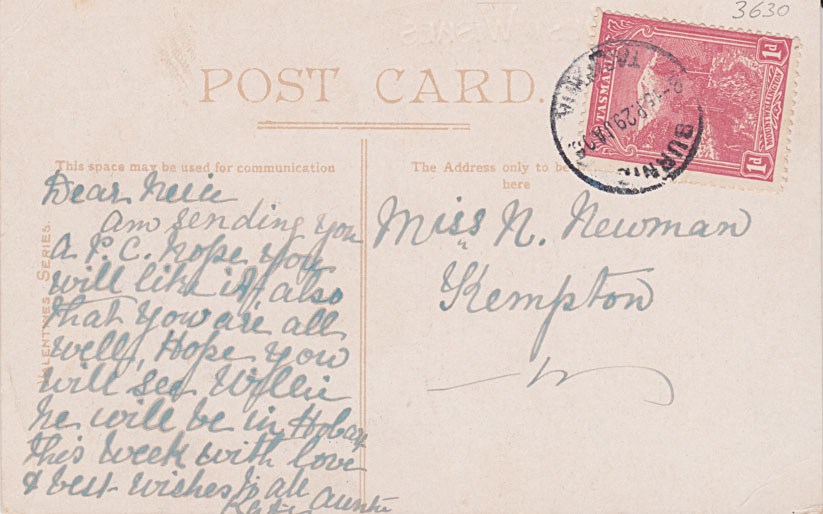 3630
POST CARD.
TASMANIA
1d
1d
BURNIE
TASMANIA
This space may be used for communication
The Address only to be
here
VALENTINES SERIES.
Dear Nellie
am sending you
a P.C. hope you
will like it, also
that you are all
well, Hope you
will see Willie
he will be in Hobart
this week with love
& best wishes to all
Auntie
Miss N. Newman
Kempton